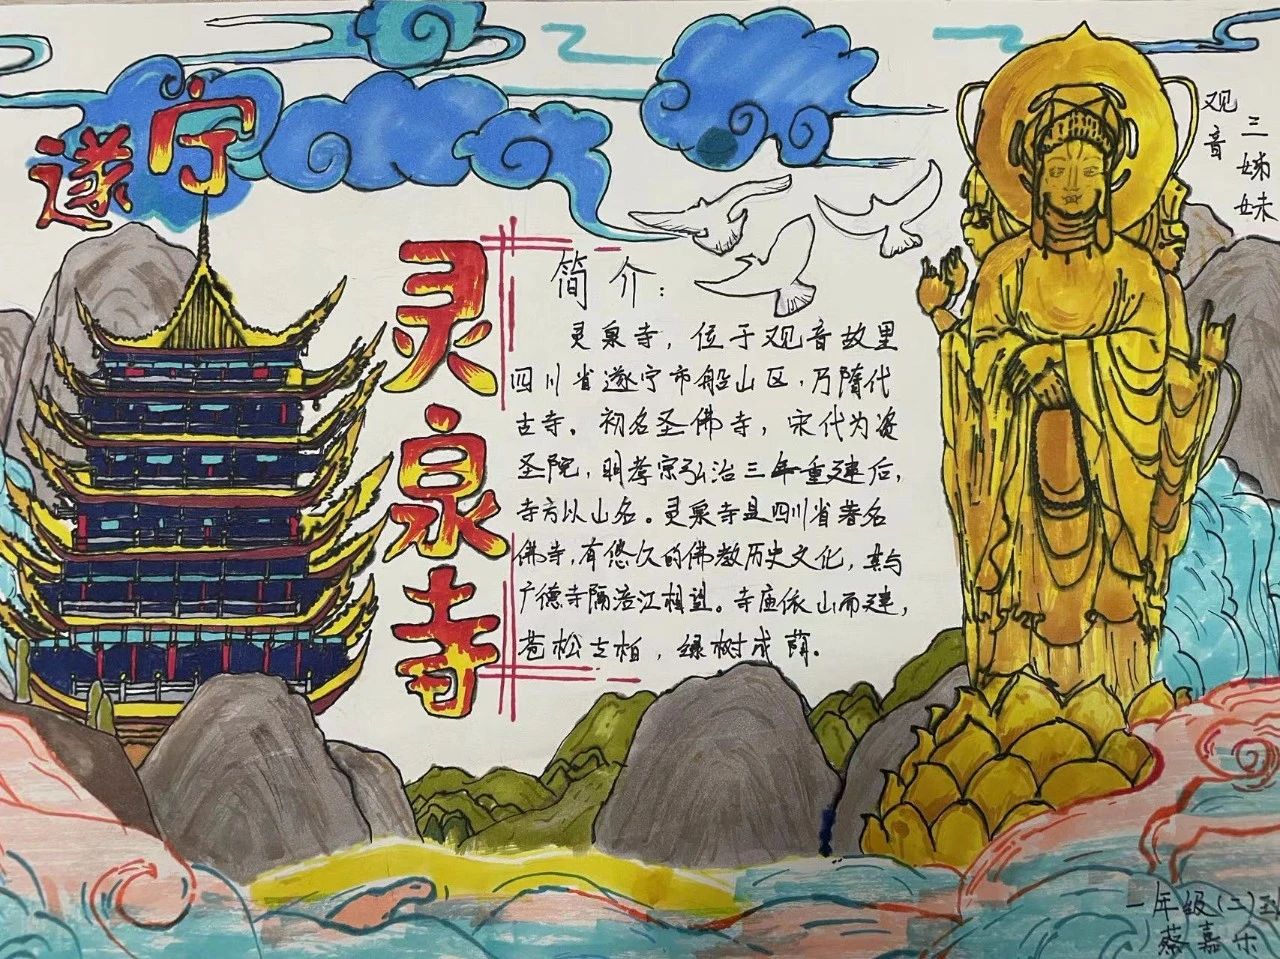 遂宁
灵泉寺
简介:
灵泉寺,位于观音故里
四川省遂宁市船山区,乃隋代
古寺。初名圣佛寺,宋代为资
圣院,明孝宗弘治三年重建后,
寺方以山名。灵泉寺是四川省著名
佛寺,有悠久的佛教历史文化,其与
广德寺隔涪江相望。寺庙依山而建,
苍松古柏,绿树成荫。
观音
三姊妹
一年级(二)班
蔡嘉乐